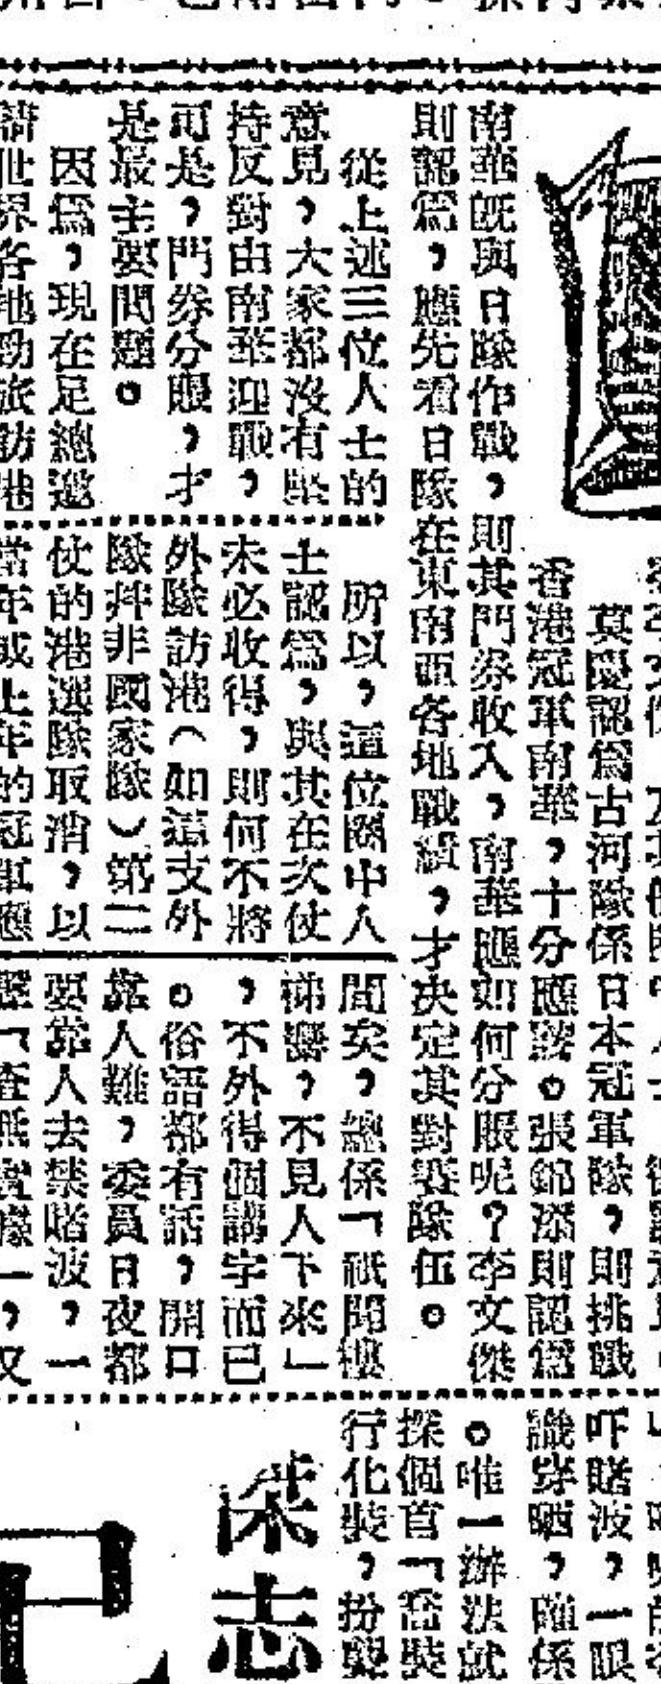 莫慶認為古河隊係日本冠軍隊，則挑戰
香港冠軍南華，十分應該。張錦添則認為
南華既與日隊作戰，則其門券收入，南華應如何分賬呢？李文傑
則認為，應先看日隊在東南亞各地戰績，才决定其對賽隊伍。
從上述三位人士的
意見，大家都沒有堅
持反對由南華迎戰，
可是，門券分賬，才
是最主要問題。
因為，現在足總邀
請世界各地勁旅訪港
所以，這位圈中人
士認為，與其在次仗
未必收得，則何不將
外隊訪港（如這支外
隊幷非國家隊）第二
仗的港選隊取消，以
當年或上年的冠軍應
間矣，總係「祇聞樓
梯響，不見人下來」
，不外得個講字而已
。俗語都有話，開口
靠人難，委員日夜都
要靠人去禁賭波，一
「查無實據」，又
吓賭波，一眼
識穿晒，確係
。唯一辦法就
探個官「喬裝
行化裝，扮嬰
梁志